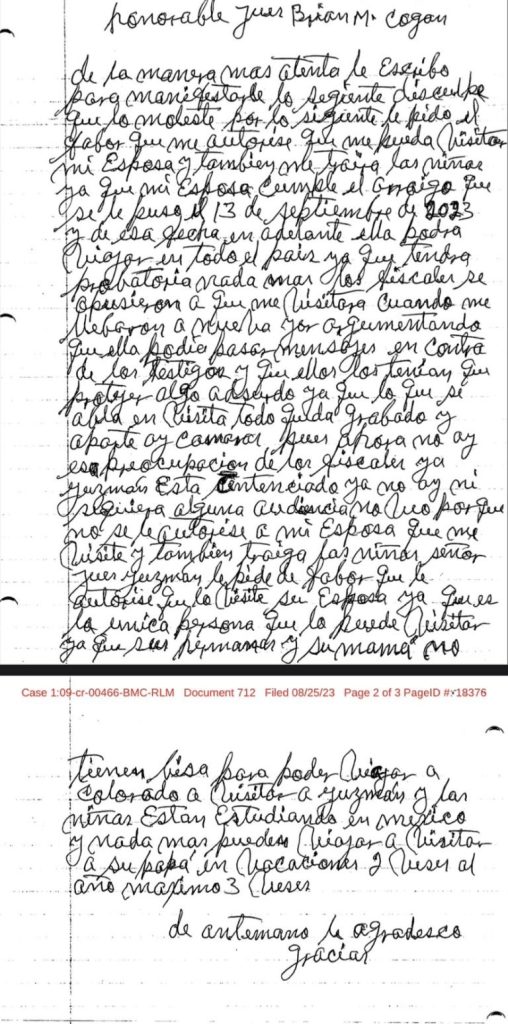 honorable Juez Brian M. Cogan
de la manera mas atenta le Escribo
para manifestarle lo segiente disculpe
que lo moleste por lo sigiente le pido el
fabor que me autorise que me pueda Visitar
mi Esposa y tambien me traiga las niñas
ya que mi Esposa cumple el arraigo que
se le puso el 13 de septiembre de 2023
y de esa fecha en adelante ella podra
Viajar en todo el pais ya que tendra
probatoria nada mas los fiscales se
opusieron a que me Visitara cuando me
llebaron a nueva yor argumentando
que ella podia pasar mensajes en contra
de los testigos y que ellos los tenian que
protejer algo adsurdo ya que lo que se
abla en Visita todo queda grabado y
aparte ay camaras pues ahora no ay
esa preocupacion de los fiscales ya
guzman Esta Centenciado ya no ay ni
siquiera alguna audiencia no Veo por que
no se le autorise a mi Esposa que me
Visite y tambien traiga las niñas señor
juez guzman le pide de fabor que le
autorise que lo Visite su Esposa ya que es
la unica persona que lo puede Visitar
ya que sus hermanas y su mamá no
Case 1:09-cr-00466-BMC-RLM Document 712 Filed 08/25/23 Page 2 of 3 PageID #: 18376
tienen bisa para poder Viajar a
Colorado a Visitar a guzmán y las
niñas Estan Estudiando en mexico
y nada mas pueden Viajar a Visitar
a su papá en Vacaciones 2 Veses al
año maximo 3 Veses
de antemano le agradesco
gracias